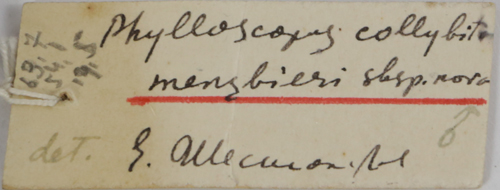 Phylloscopus collybita
menzbieri sbsp. nova
♂
det.
69,7
54,1
19,5